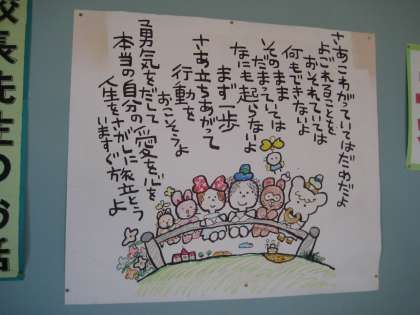 さあこわがっていてはだめだよ
よごれることを
おそれていては
何もできないよ
そのまま
だまっていては
なにも起らないよ
まず一歩
さあ立ちあがって
行動を
おこそうよ
勇気をだして
本当の自分の愛を心を
人生をさがしに旅立とう
いますぐ旅立とうよ
校長先生のお話